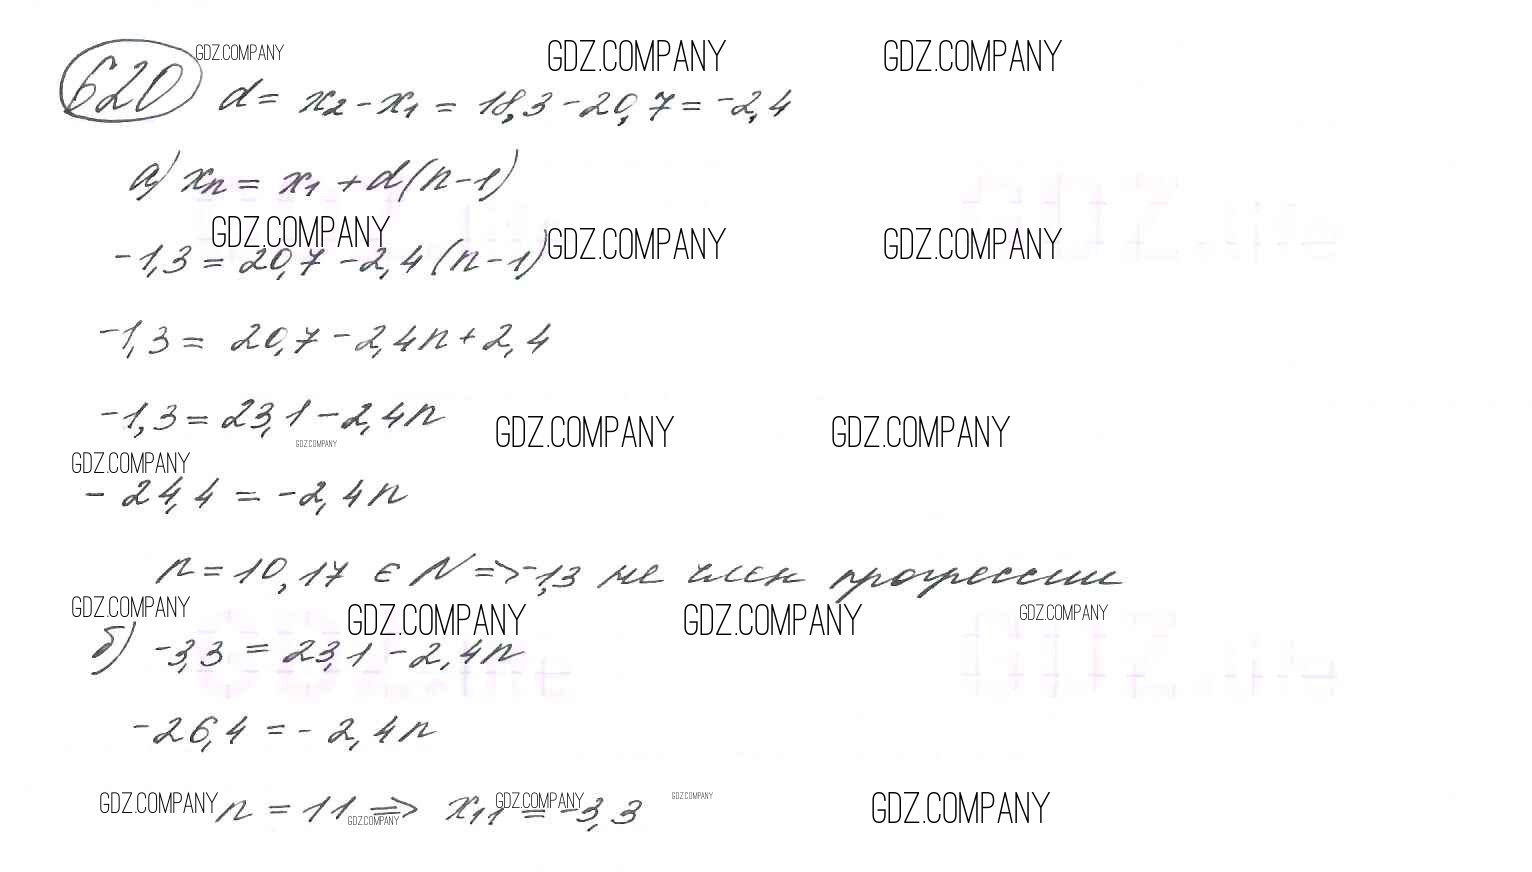 GDZ.COMPANY GDZ.COMPANY GDZ.COMPANY
620 d = x₂ - x₁ = 18,3 - 20,7 = -2,4
а) xₙ = x₁ + d(n-1)
GDZ.COMPANY GDZ.COMPANY GDZ.COMPANY
GDZ.life
-1,3 = 20,7 - 2,4(n-1)
-1,3 = 20,7 - 2,4n + 2,4
-1,3 = 23,1 - 2,4n
GDZ.COMPANY GDZ.COMPANY
GDZ.COMPANY
GDZ.COMPANY
-24,4 = -2,4n
n = 10,17 ∈ N => -1,3 не член прогрессии
GDZ.COMPANY GDZ.COMPANY GDZ.COMPANY GDZ.COMPANY
б) -3,3 = 23,1 - 2,4n
GDZ.life
-26,4 = -2,4n
GDZ.COMPANY GDZ.COMPANY GDZ.COMPANY GDZ.COMPANY
n = 11 => x₁₁ = -3,3
GDZ.COMPANY